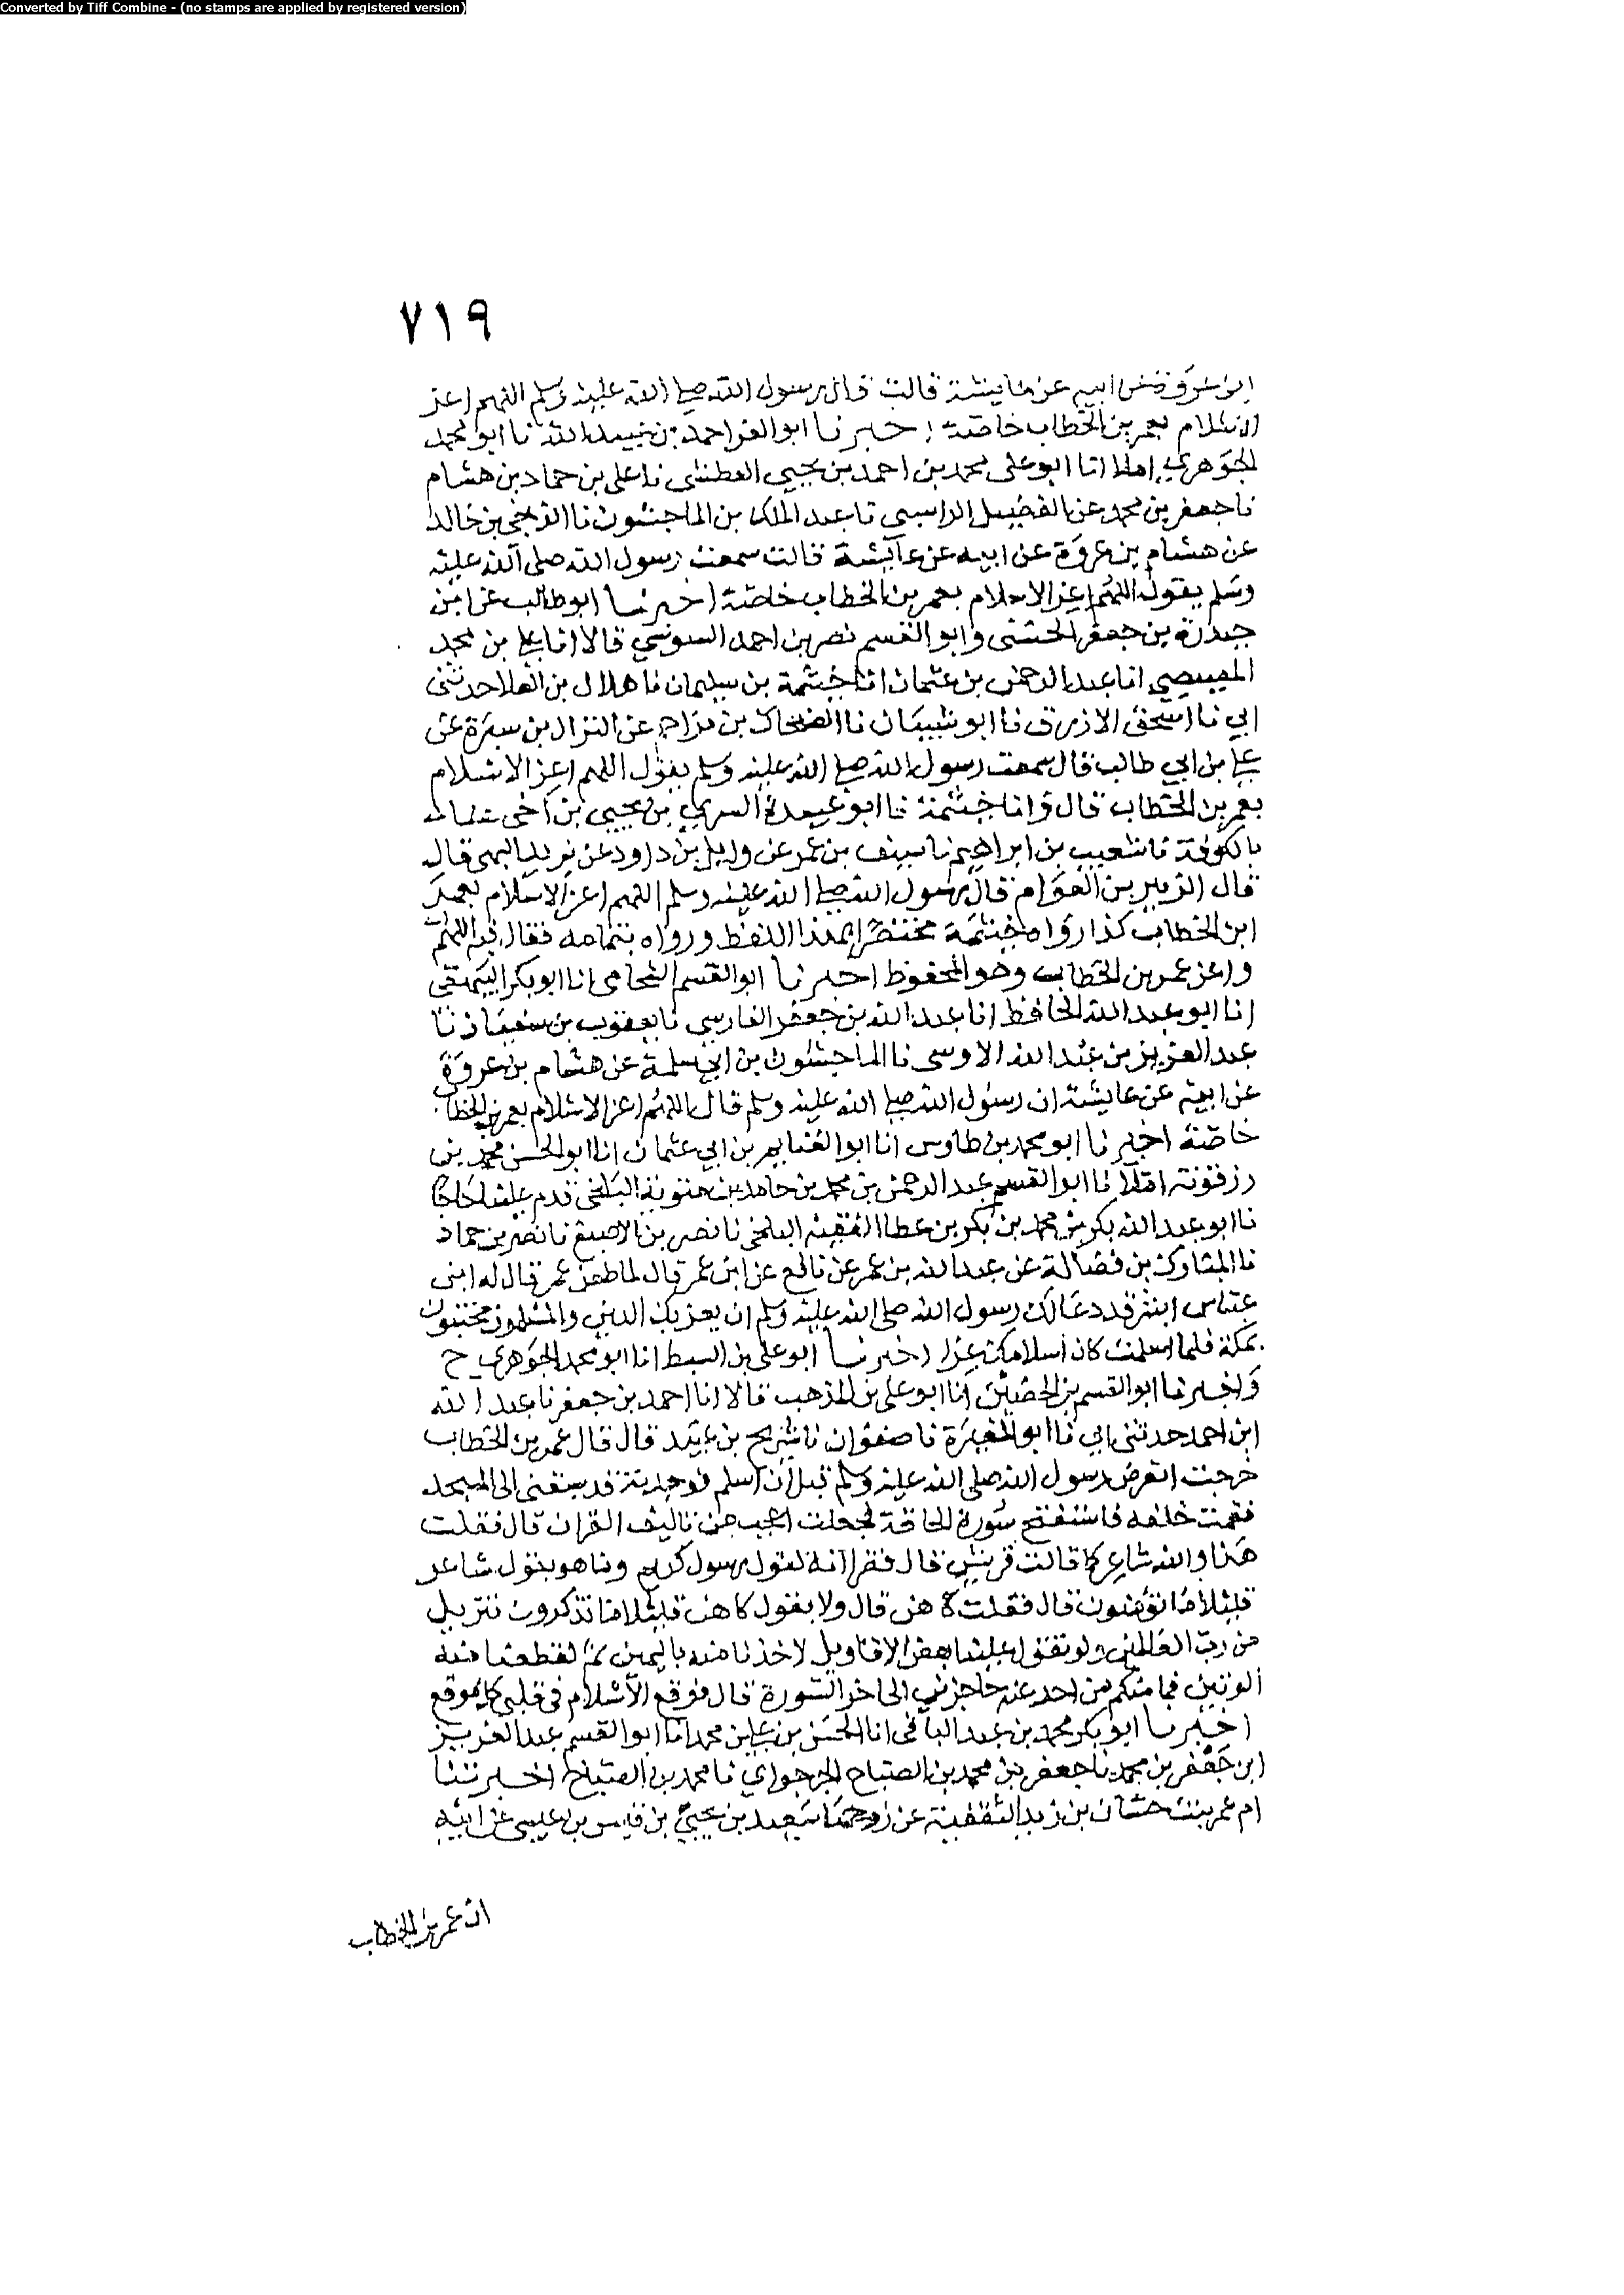 Converted by Tiff Combine - (no stamps are applied by registered version)
٧١٩
ابن عروة عن ابيه عن عايشة قالت قال رسول الله صلى الله عليه وسلم اللهم اعز
الاسلام بعمر بن الخطاب خاصة اخبرنا ابو العز احمد بن عبيد الله انا ابو محمد
الجوهري املا انا ابو على محمد بن احمد بن يحيى العطشى نا على بن حماد بن هشام
نا جعفر بن محمد عن الفضيل الراسبى نا عبد الملك بن الماجشون نا الزنجى بن خالد
عن هشام بن عروة عن ابيه عن عايشة قالت سمعت رسول الله صلى الله عليه
وسلم يقول اللهم اعز الاسلام بعمر بن الخطاب خاصة اخبرنا ابو طالب بن
حيدرة بن جعفر الحسنى وابو القسم نصر بن احمد السوسي قالا انا على بن محمد
المصيصي انا عبد الرحمن بن عثمان انا خيثمة بن سليمان نا هلال بن العلا حدثنى
ابي نا اسحق الازرق نا ابو سنان نا الضحاك بن مزاحم عن النزال بن سبرة عن
على بن ابي طالب قال سمعت رسول الله صلى الله عليه وسلم يقول اللهم اعز الاسلام
بعمر بن الخطاب قال وانا خيثمة نا ابو عبيدة السري بن يحيى بن اخى هناد
بالكوفة نا شعيب بن ابراهيم نا سيف بن عمر عن وايل بن داود عن يزيد البهى قال
قال الزبير بن العوام قال رسول الله صلى الله عليه وسلم اللهم اعز الاسلام بعمر
ابن الخطاب كذا رواه خيثمة مختصرا بهذا اللفظ ورواه بتمامه فقال فيه اللهم
واعز عمر بن الخطاب وهو المحفوظ اخبرنا ابو القسم الشحامى انا ابو بكر البيهقى
انا ابو عبد الله الحافظ انا عبد الله بن جعفر الفارسي نا يعقوب بن سفيان نا
عبد العزيز بن عبد الله الاوسى نا الماجشون بن ابي سلمة عن هشام بن عروة
عن ابيه عن عايشة ان رسول الله صلى الله عليه وسلم قال اللهم اعز الاسلام بعمر بن الخطاب
خاصة اخبرنا ابو محمد بن طاوس انا ابو الغنايم بن ابي عثمان انا ابو الحسن محمد بن
رزقونة املا نا ابو القسم عبد الرحمن بن محمد بن حامد بن متوية البلخى قدم علينا حاجا
نا ابو عبد الله بكر بن محمد بن بكر بن عطا الفقيه البلخى نا نصر بن الاصبغ نا نصر بن حماد
نا المبارك بن فضالة عن عبيد الله بن عمر عن نافع عن ابن عمر قال لما طعن عمر قال له ابن
عباس ابشر قد دعا لك رسول الله صلى الله عليه وسلم ان يعز بك الدين والمسلمون مختبئون
بمكة فلما اسلمت كان اسلامك عزا اخبرنا ابو على بن السبط انا ابو محمد الجوهري ح
واخبرنا ابو القسم بن الحصين انا ابو على بن المذهب قالا انا احمد بن جعفر نا عبد الله
ابن احمد حدثنى ابي نا ابو المغيرة نا صفوان نا شريح بن عبيد قال قال عمر بن الخطاب
خرجت اتعرض رسول الله صلى الله عليه وسلم قبل ان اسلم فوجدته قد سبقنى الى المسجد
فقمت خلفه فاستفتح سورة الحاقة فجعلت اعجب من تاليف القران قال فقلت
هذا والله شاعر كما قالت قريش قال فقرا انه لقول رسول كريم وما هو بقول شاعر
قليلا ما تؤمنون قال فقلت كاهن قال ولا بقول كاهن قليلا ما تذكرون تنزيل
من رب العالمين ولو تقول علينا بعض الاقاويل لاخذنا منه باليمين ثم لقطعنا منه
الوتين فما منكم من احد عنه حاجزين الى اخر السورة قال فوقع الاسلام في قلبي كل موقع
اخبرنا ابو بكر محمد بن عبد الباقى انا الحسن بن على بن محمد انا ابو القسم عبد العزيز
ابن جعفر بن محمد نا جعفر بن محمد بن الصباح الجرجراي نا محمد بن الصباح اخبرتنا
ام عمر بنت حسان بن زيد الثقفية عن زوجها سعيد بن يحيى بن قيس بن عيسى عن ابيه
ان عمر بن الخطاب